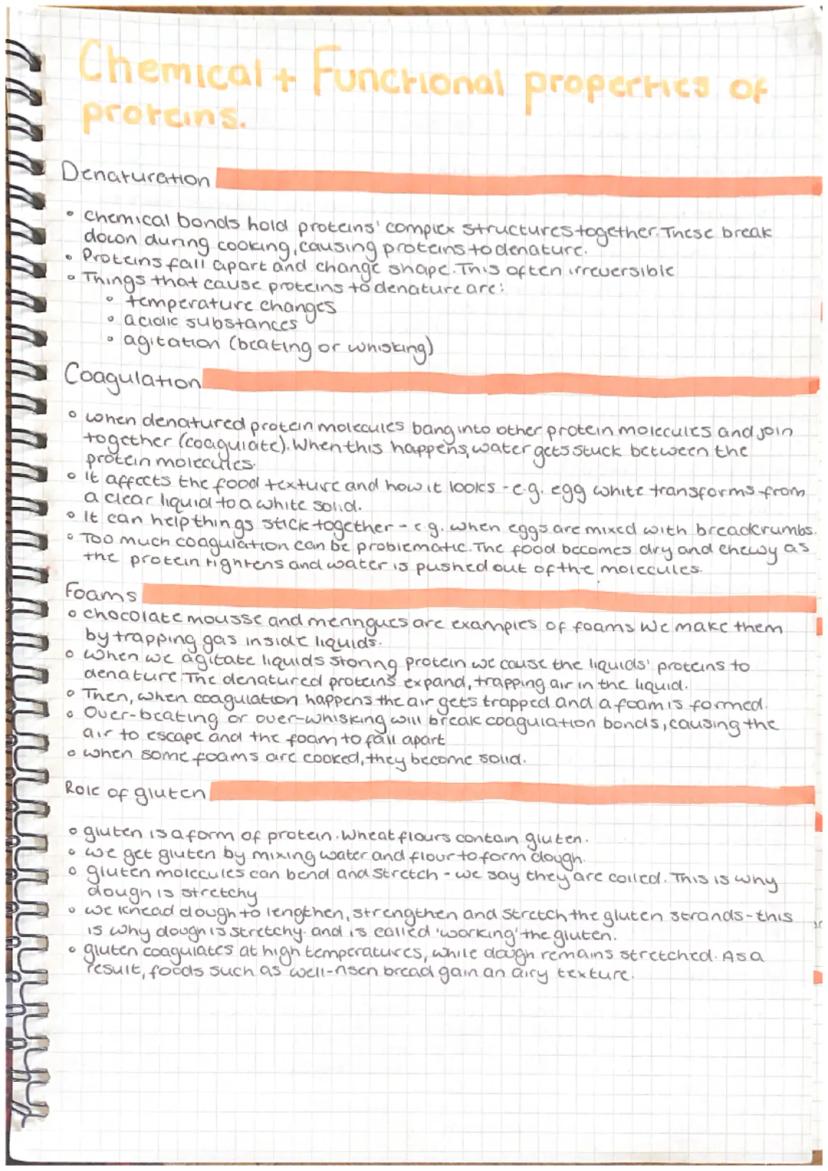 Chemical + Functional properties of
proteins.
Denaturation
• chemical bonds hold proteins' complex structures together. These break
down during cooking, causing proteins to denature.
• Proteins fall apart and change shape. This often irreversible
• Things that cause proteins to denature are:
• temperature changes
• acidic substances
• agitation (beating or whisking)
Coagulation
• when denatured protein molecules bang into other protein molecules and join
together (coagulate). When this happens, water gets stuck between the
protein molecules.
• It affects the food texture and how it looks - e.g. egg white transforms from
a clear liquid to a white solid.
• It can help things stick together - e.g. when eggs are mixed with breadcrumbs.
• Too much coagulation can be problematic. The food becomes dry and chewy as
the protein tightens and water is pushed out of the molecules.
Foams
• chocolate mousse and meringues are examples of foams we make them
by trapping gas inside liquids.
• when we agitate liquids storing protein we cause the liquids' proteins to
denature. The denatured proteins expand, trapping air in the liquid.
• Then, when coagulation happens the air gets trapped and a foam is formed.
• Over-beating or over-whisking will break coagulation bonds, causing the
air to escape and the foam to fall apart
• when some foams are cooked, they become solid.
Role of gluten
• gluten is a form of protein. Wheat flours contain gluten.
• we get gluten by mixing water and flour to form dough.
• gluten molecules can bend and stretch - we say they are coiled. This is why
dough is stretchy
• we knead dough to lengthen, strengthen and stretch the gluten strands - this
is why dough is stretchy. and is called 'working' the gluten.
• gluten coagulates at high temperatures, while dough remains stretched. As a
result, foods such as well-risen bread gain an airy texture.